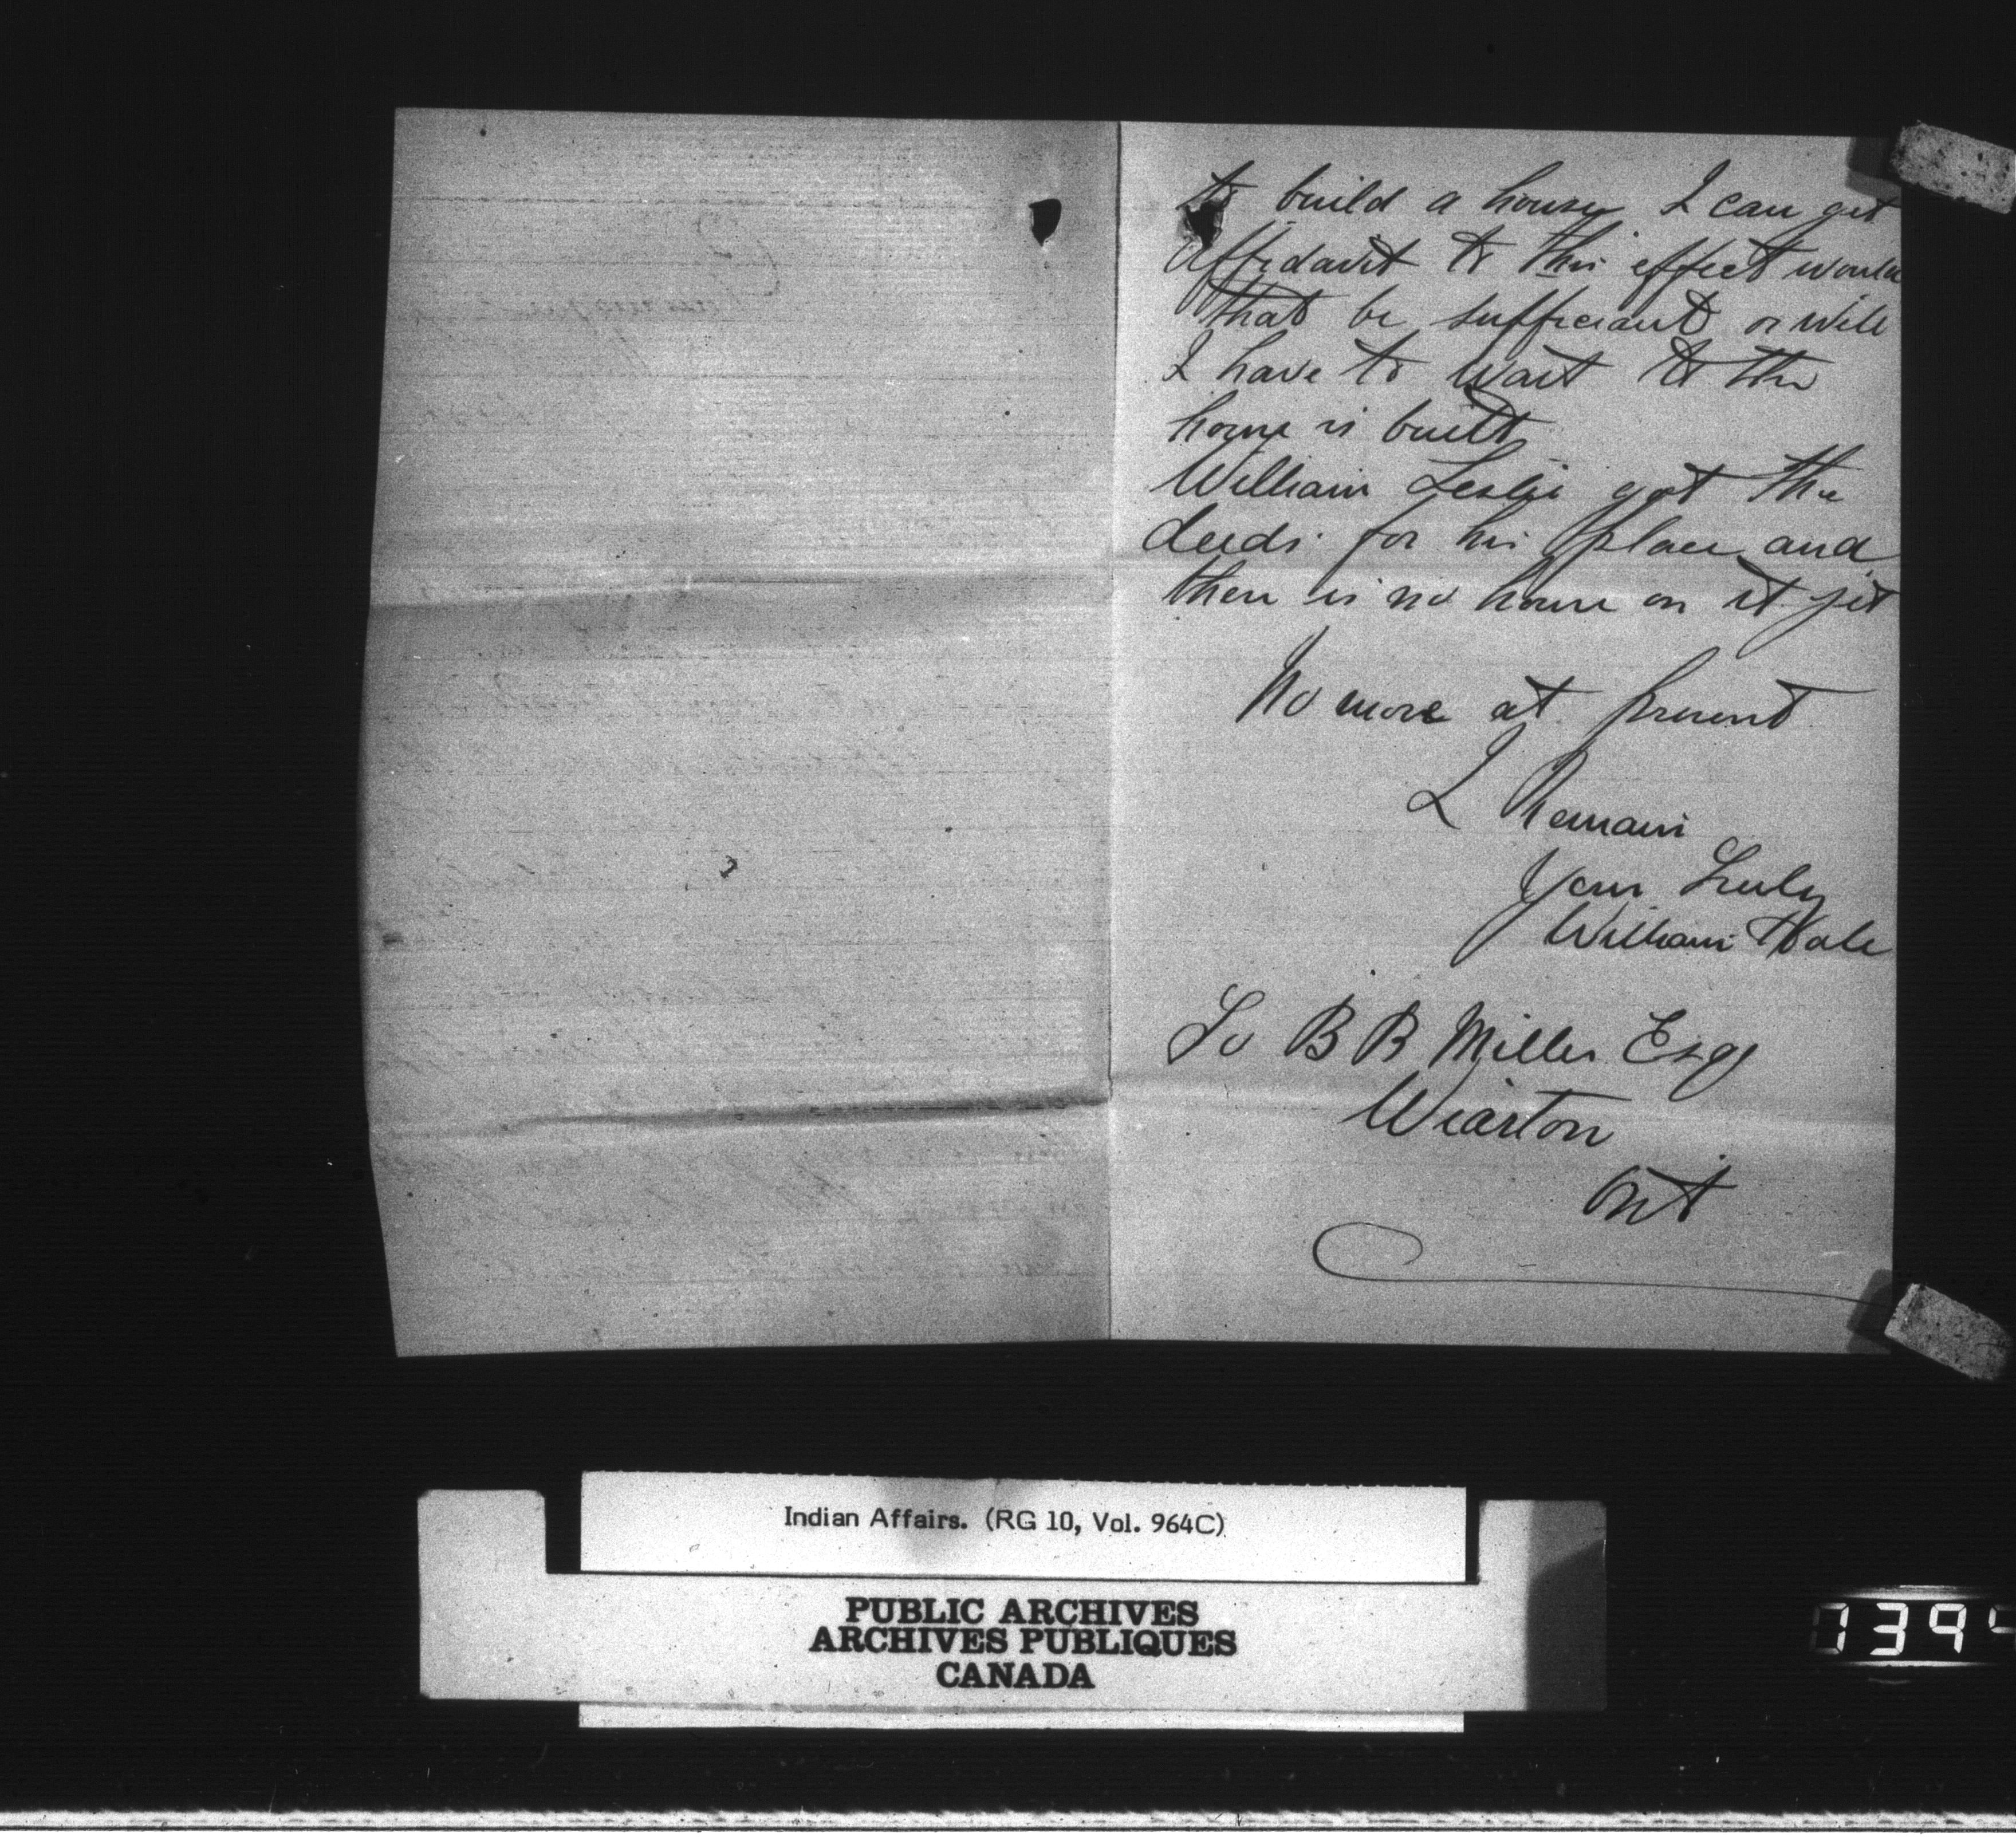 to build a house I can get
Affidavit to this effect would
that be sufficiant or will
I have to wait to the
house is built
William Leslie got the
deeds for his place and
there is no house on it yet
No more at present
I Remain
Yours Truly
William Hale
To B B Miller Esqr
Wiarton
Ont
Indian Affairs. (RG 10, Vol. 964C)
PUBLIC ARCHIVES
ARCHIVES PUBLIQUES
CANADA